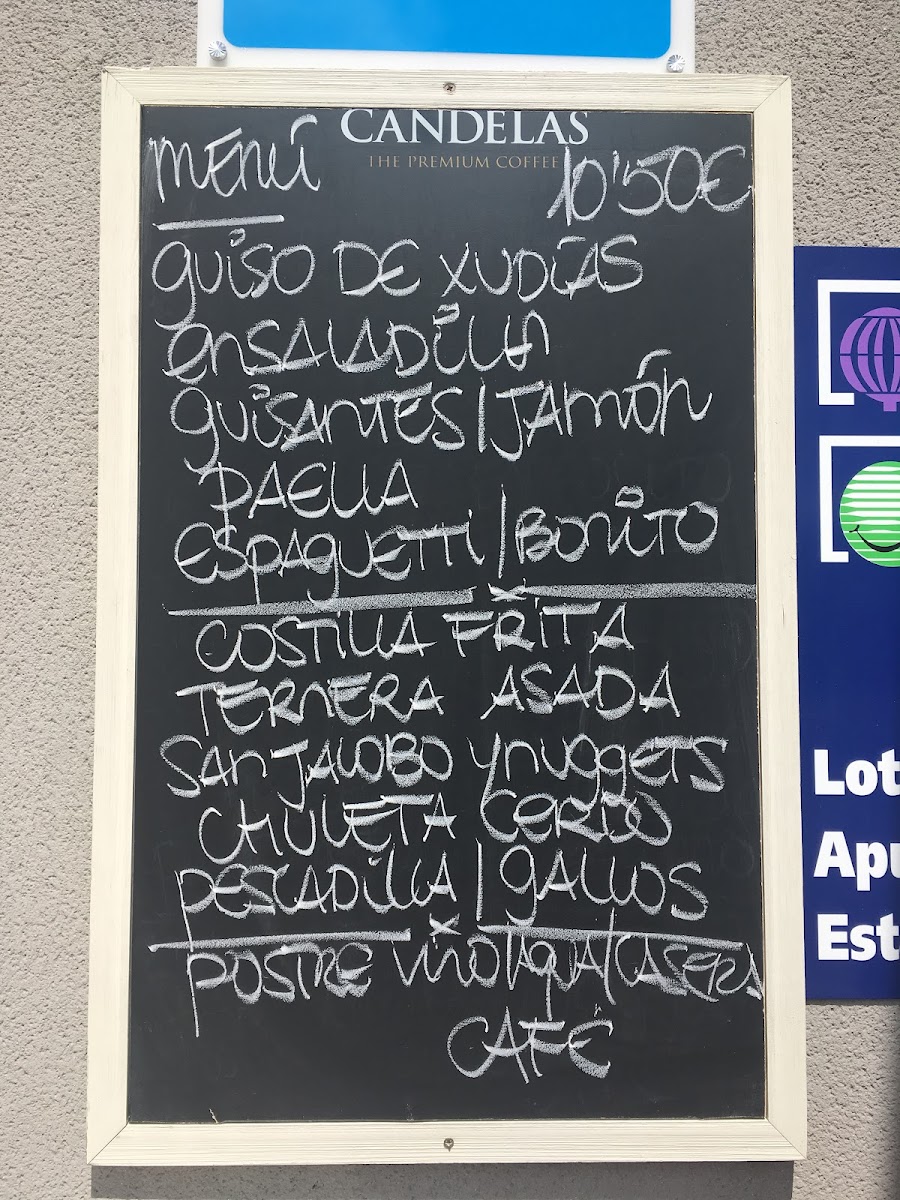 CANDELAS
THE PREMIUM COFFEE
MENÚ 10'50€
GUISO DE XUDÍAS
ENSALADILLA
GUISANTES/JAMÓN
PAELLA
ESPAGUETTI/BONITO
COSTILLA FRITA
TERNERA ASADA
SAN JACOBO Y NUGGETS
CHULETA CERDO
PESCADILLA/GALLOS
POSTRE VINO/AQUA/CASERA
CAFÉ
Lot
Apu
Est